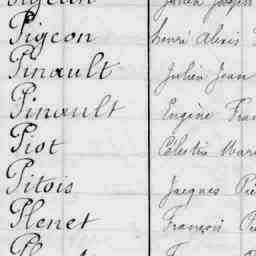 Pigeon Henri Alexis
Pinault Julien Jean
Pinault Eugène Fran
Piot Célestin Mari
Pitois Jacques Pi
Plenet François Pi